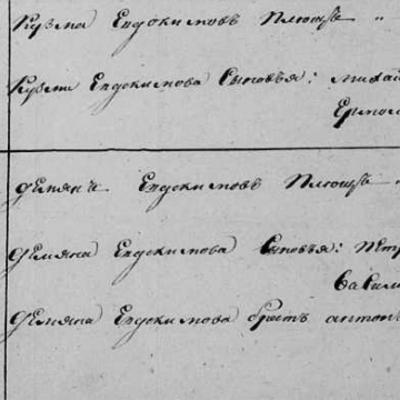 Кузма Евдокимовъ Плющъ "
Кузмы Евдокимова Сыновья: Михай
Ермол
Демянъ Евдокимовъ Плющъ "
Демяна Евдокимова Сыновья: Петр
Васил
Демяна Евдокимова братъ антонъ